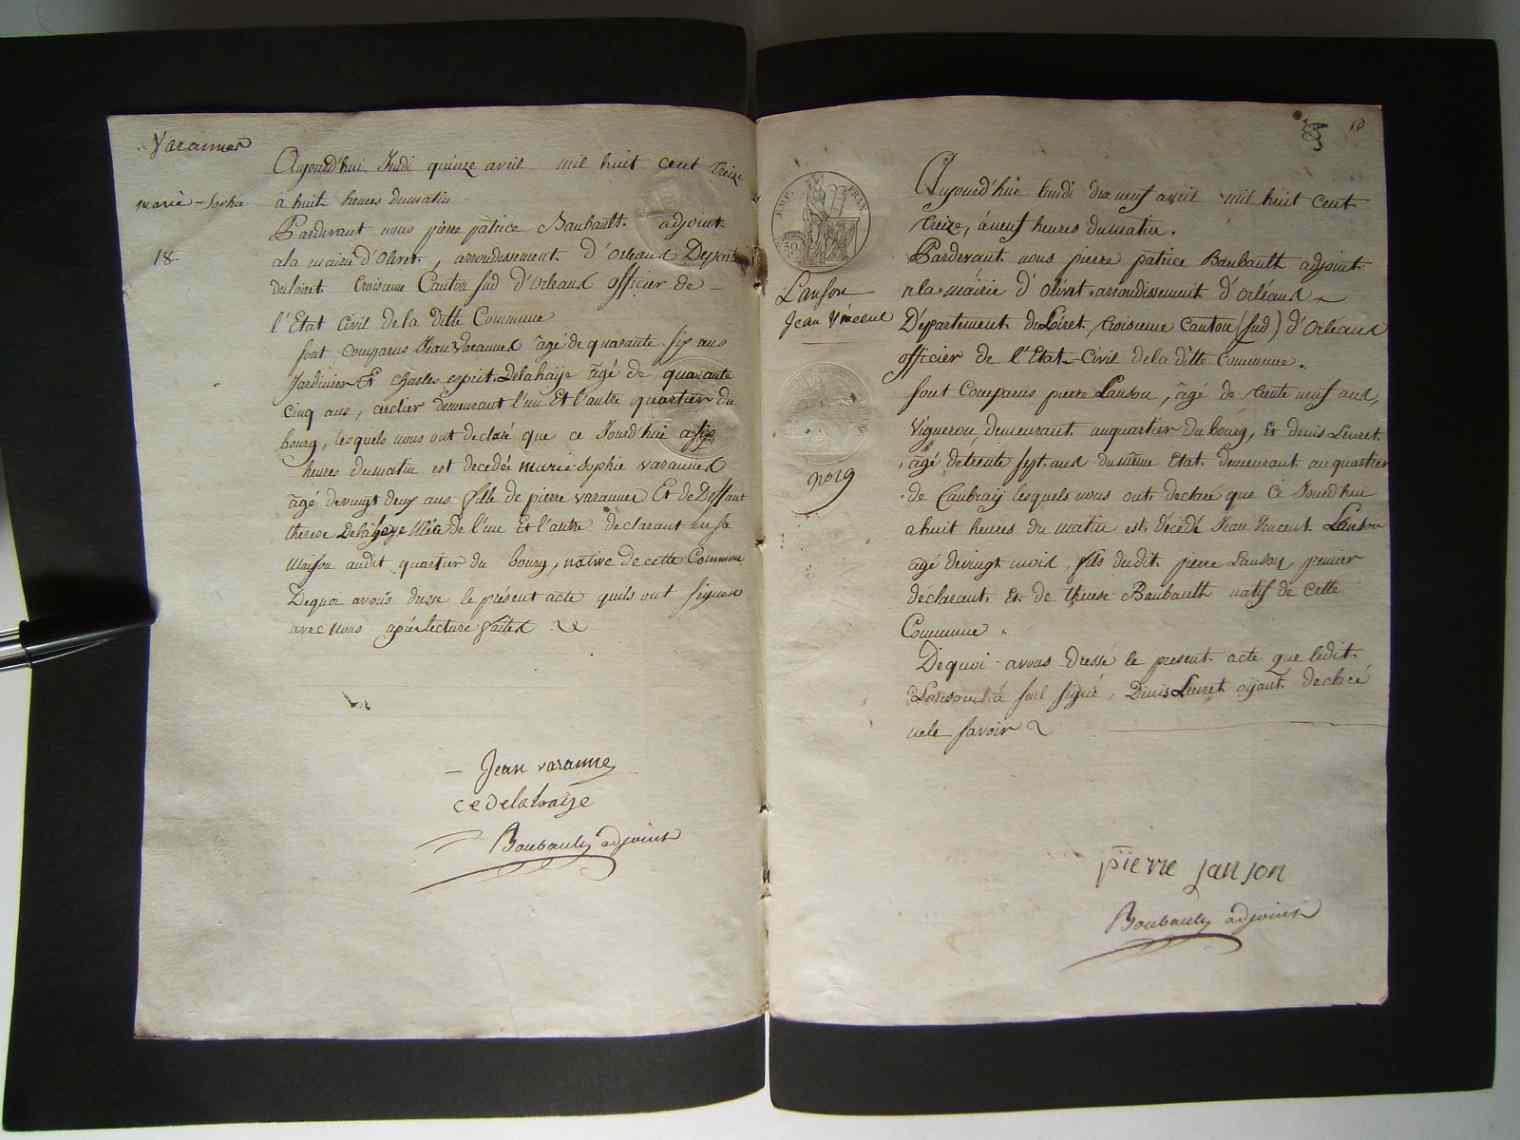 Varannes
marie-Sophie
18
Aujourd'hui Jeudi quinze avril mil huit cent treize
a huit heures du matin
Pardevant nous pierre patrice Baubault adjoint
a la mairie d'Olivet, arrondissement d'Orleans Departt
du Loiret troisieme Canton sud d'Orleans officier de
l'Etat Civil de la ditte Commune
sont comparus Jean Varannes âgé de quarante six ans
Jardinier Et charles esprit Delahaye âgé de quarante
Cinq ans, cerclier demeurant l'un Et l'autre quartier du
bourg, lesquels nous ont declaré que ce Jourd'hui a six
heures du matin est decedée marie Sophie varannes
âgé de vingt deux ans fille de pierre varannes Et de Deffunt
therese Delahaye Niéce de l'un et l'autre declarant en sa
Maison audit quartier du bourg, native de cette Commune
De quoi avons dressé le présent acte quils ont signés
avec nous après lecture faites
Jean varanne
c e Delahaije
Baubault adjoint
EMP. FRAN.
Lanson
Jean Vincent
no 19
Aujourd'hui lundi dix neuf avril mil huit cent
treize, à neuf heures du matin.
Pardevant nous pierre patrice Baubault adjoint
a la mairie d'olivet arrondissement d'orléans
Département du Loiret, troisieme canton (sud) d'Orléans
officier de l'Etat Civil de la ditte Commune.
sont Comparus pierre Lanson, âgé de trente neuf ans,
Vigneron, demeurant au quartier du bourg, Et denis Leuret
âgé de trente sept ans du même Etat demeurant au quartier
de Caubray lesquels nous ont declaré que Ce Jourd'hui
a huit heures du matin est décédé Jean Vincent Lanson
âgé de vingt mois, fils dudit pierre Lanson, premier
déclarant Et de therese Baubault natif de cette
Commune.
De quoi avons dressé le present acte que ledit
Lanson à seul signé, Denis Leuret ayant declaré
ne le savoir
pierre Lanson
Baubault adjoint